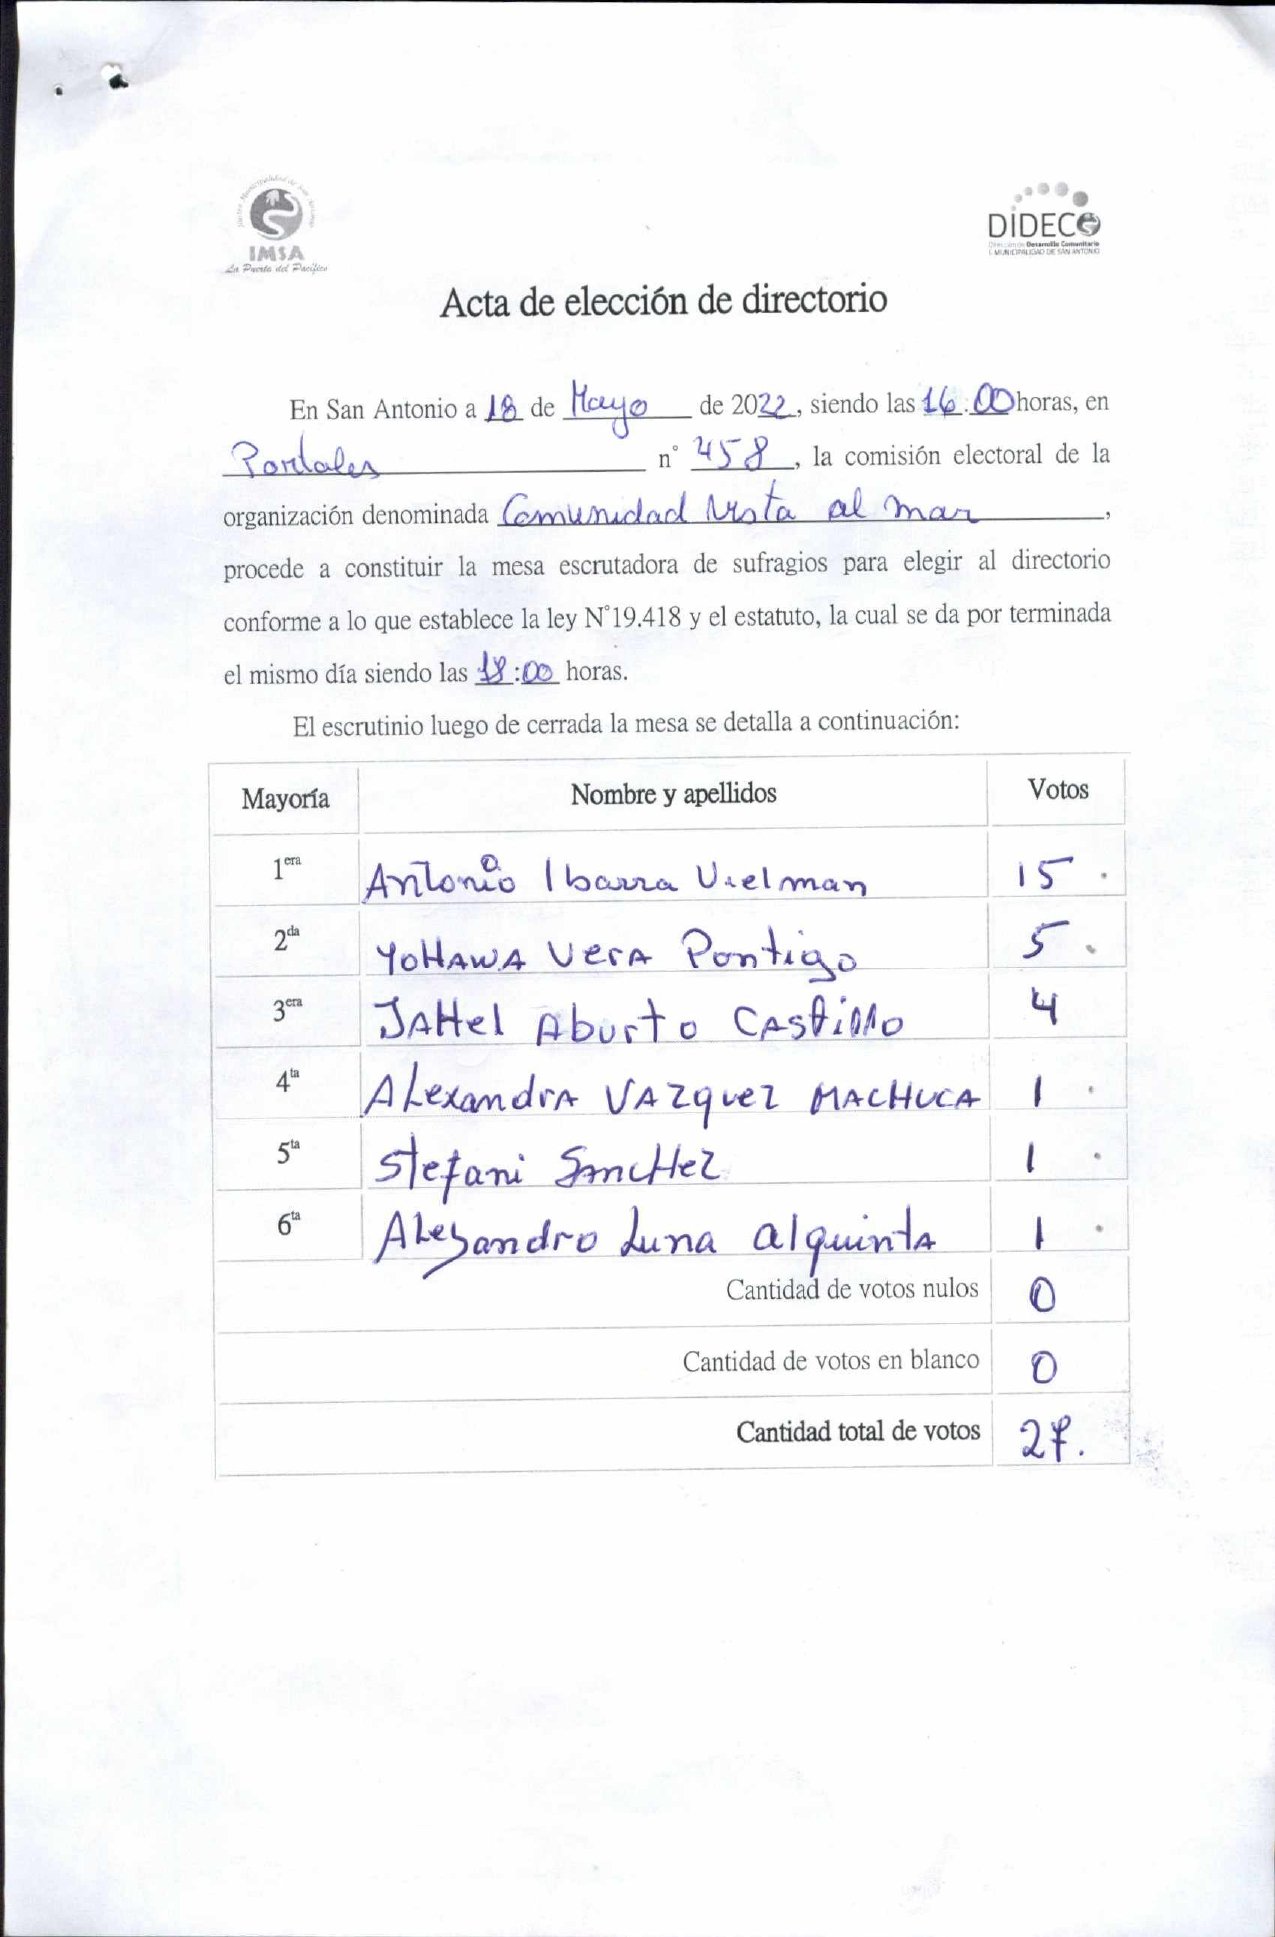 IMSA
La Puerta del Pacífico
DIDECO
Dirección de Desarrollo Comunitario
I. MUNICIPALIDAD DE SAN ANTONIO
Acta de elección de directorio
En San Antonio a 18 de Mayo de 2022, siendo las 16:00 horas, en
Portales n° 458, la comisión electoral de la
organización denominada Comunidad Vista al mar,
procede a constituir la mesa escrutadora de sufragios para elegir al directorio
conforme a lo que establece la ley N°19.418 y el estatuto, la cual se da por terminada
el mismo día siendo las 18:00 horas.
El escrutinio luego de cerrada la mesa se detalla a continuación:
Mayoría Nombre y apellidos Votos
1era Antonio Ibarra Vielman 15.
2da YOHAWA VerA Pontigo 5.
3era JAHel Aburto CAStillo 4
4ta ALexandrA VAZquez MACHUCA 1.
5ta Stefani SAncHez 1.
6ta ALejandro Luna alquintA 1.
Cantidad de votos nulos 0
Cantidad de votos en blanco 0
Cantidad total de votos 27.